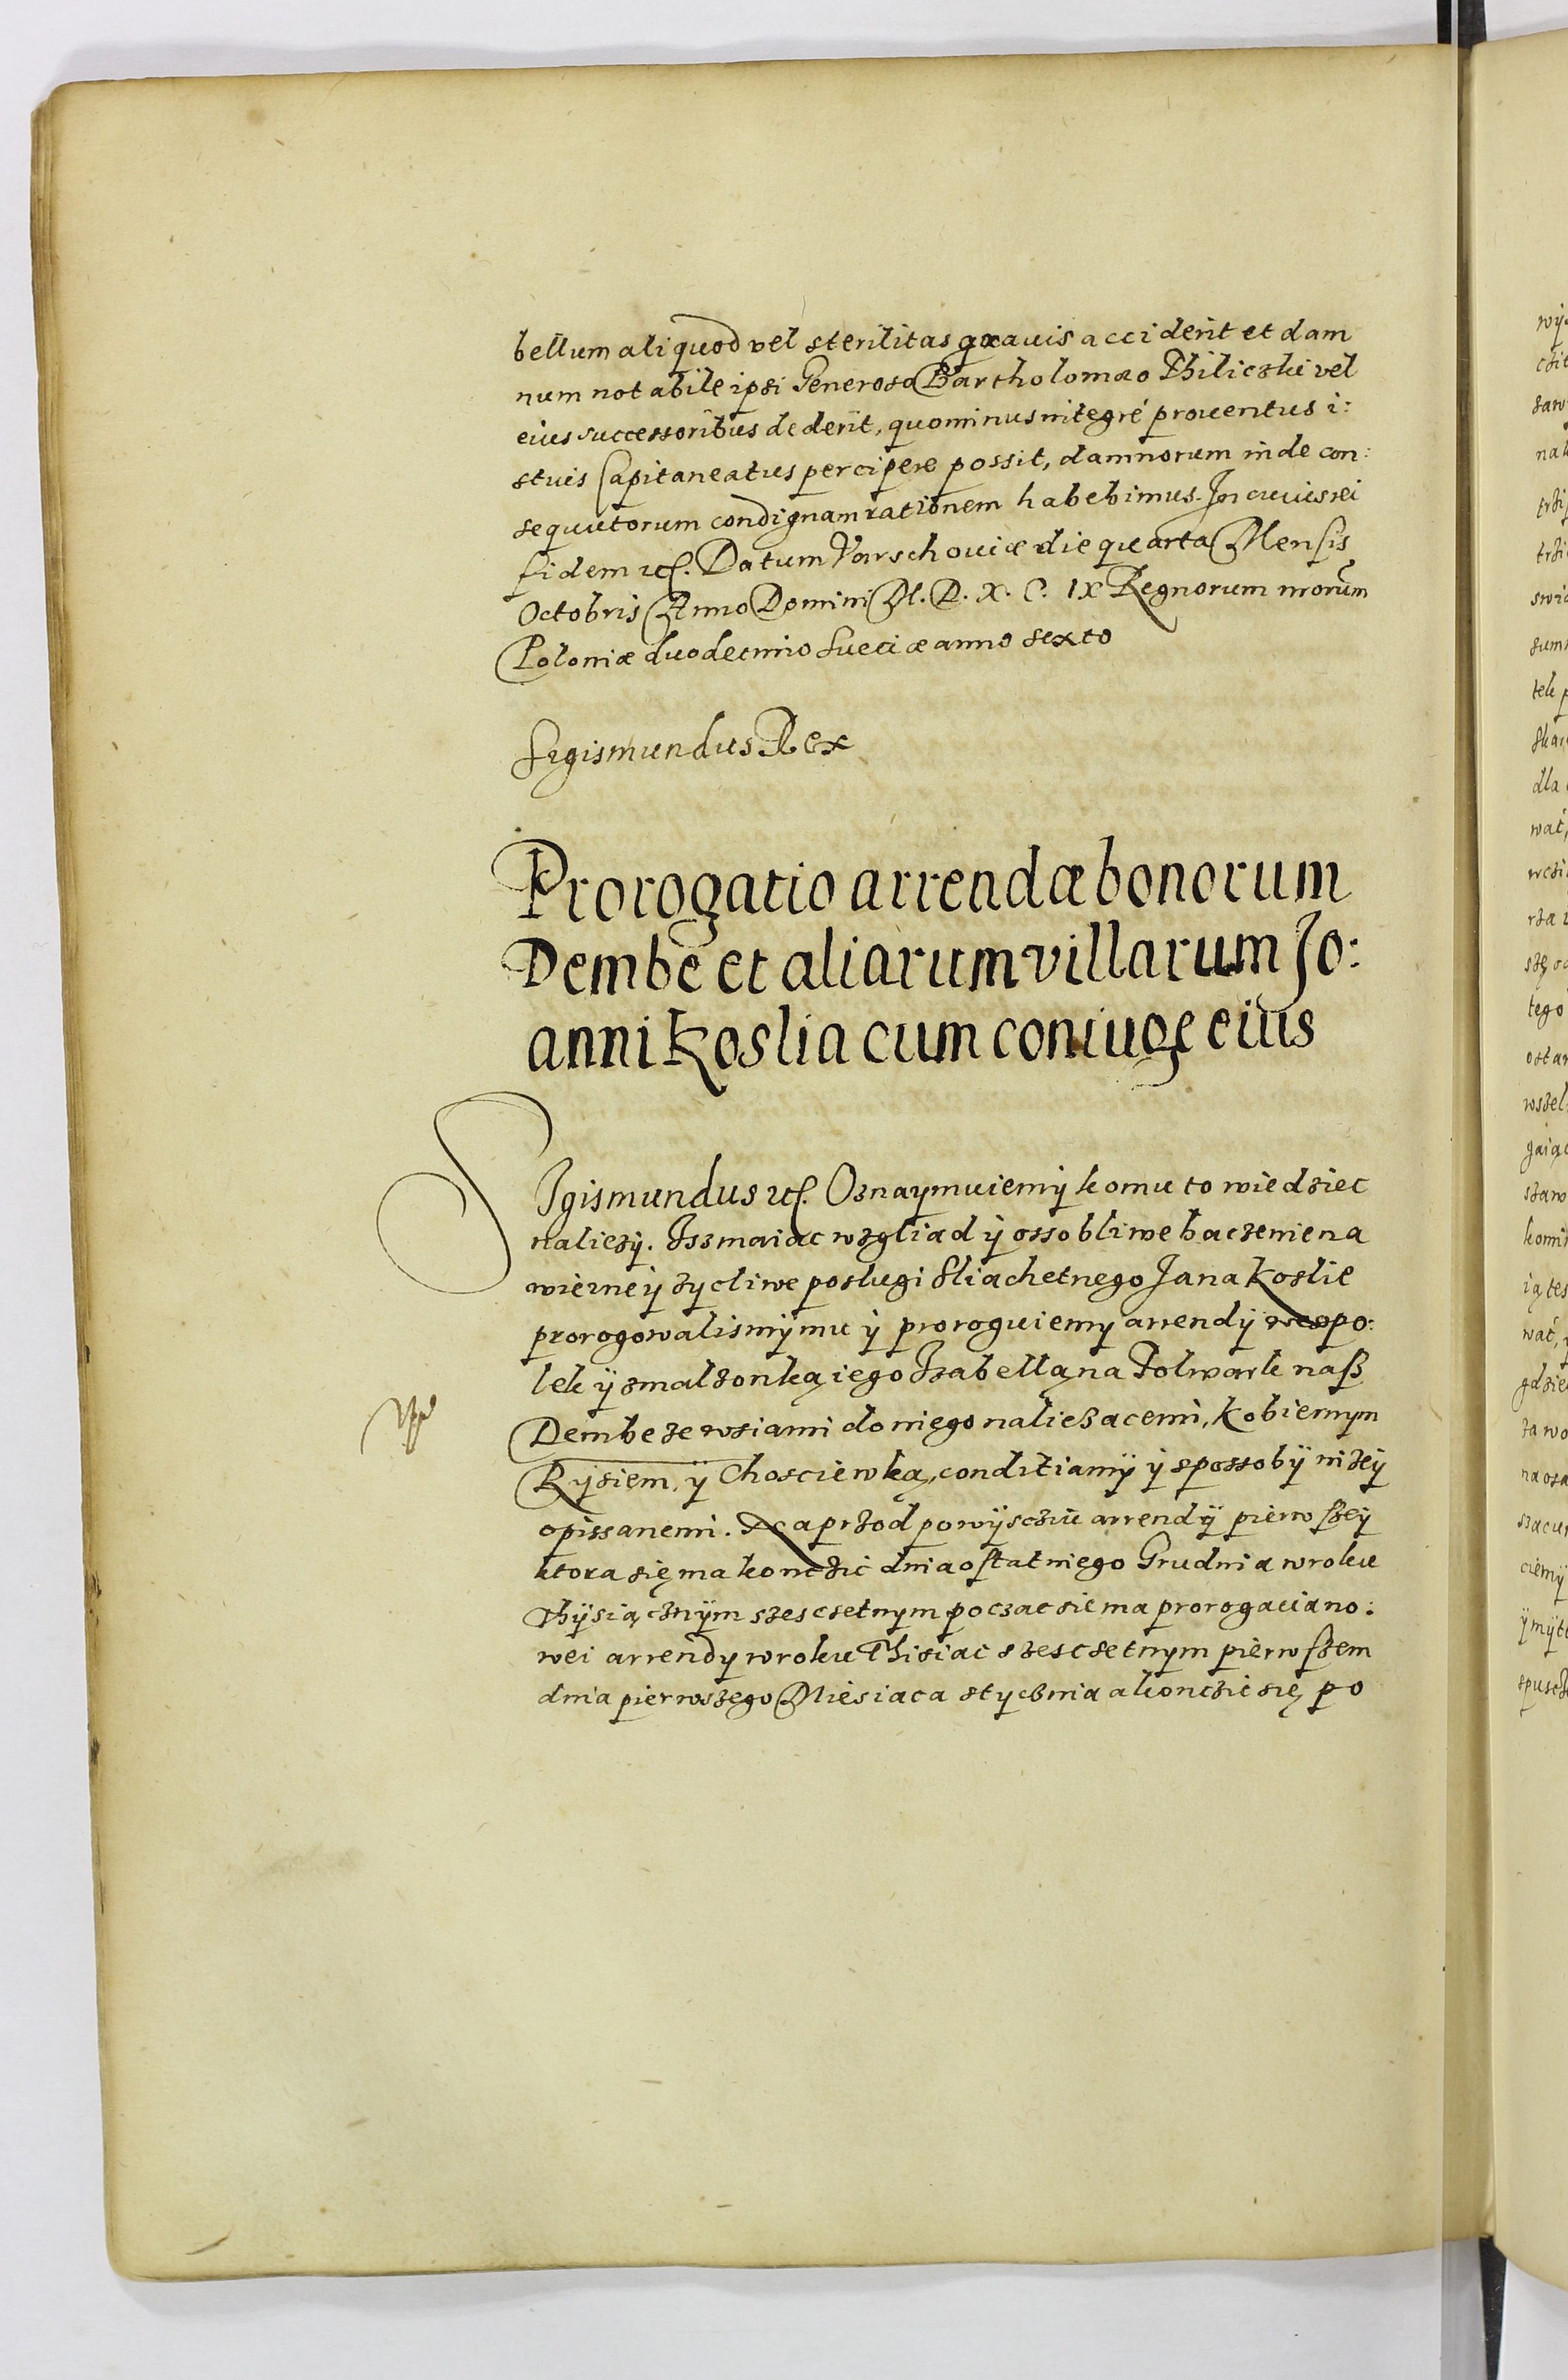 bellum aliquod vel sterilitas grauis acciderit et dam
num notabile ipsi Generoso Bartholomæo Thiliczki vel
eius successoribus dederit, quominus integré prouentus i:
stius Capitaneatus percipere possit, damnorum inde con:
sequutorum condignam rationem habebimus. In cuius rei
fidem etc. Datum Varschouiæ die quarta Mensis
Octobris Anno Domini M. D. X. C. IX Regnorum nrorum
Poloniæ duodecimo Sueciæ anno sexto
Sigismundus Rex
Prorogatio arrendæ bonorum
Dembe et aliarum villarum Jo:
anni Koslia cum coniuge eius
SIgismundus etc. Oznaymuiemÿ komu to wiedziec
naliezÿ. Isz maiac wzgliad ÿ ossobliwe baczenie na
wierne ÿ zycliwe poslugi Sliachetnego Jana Koslie
prorogowalismÿ mu ÿ proroguiemy arrendÿ wespo:
lek ÿ zmalzonką iego Izabellą na Folwark nasz
Dembe ze wsiami do niego naliezacemi, Kobiernym
Rysiem, ÿ Chosciewką, conditiamÿ ÿ spossobÿ nizeÿ
opissanemi. Naprzod po wÿsciu arrendÿ pierwszeÿ
ktora się ma konczic dnia ostatniego Grudnia w roku
Thÿsiącznÿm szescsetnym poczac sie ma prorogacia no:
wei arrendy w roku Thisiac szescsetnym pierwszem
dnia pierwszego Miesiaca stycznia a konczic się po